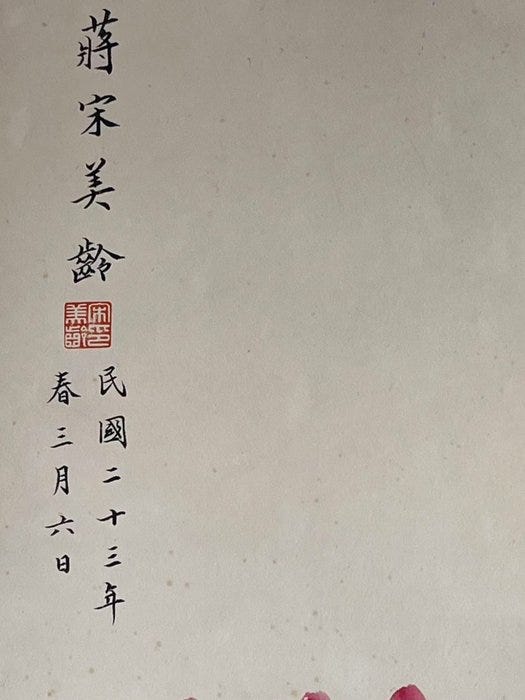 蔣宋美齡
宋美齡印
民國二十三年
春三月六日